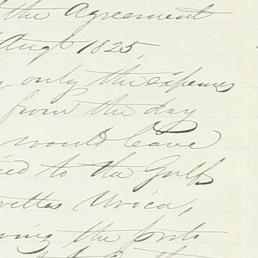 the Agreement
Augt 1825,
only the expenses
from the day
would leave
to the Gulf
Urica,
the ports